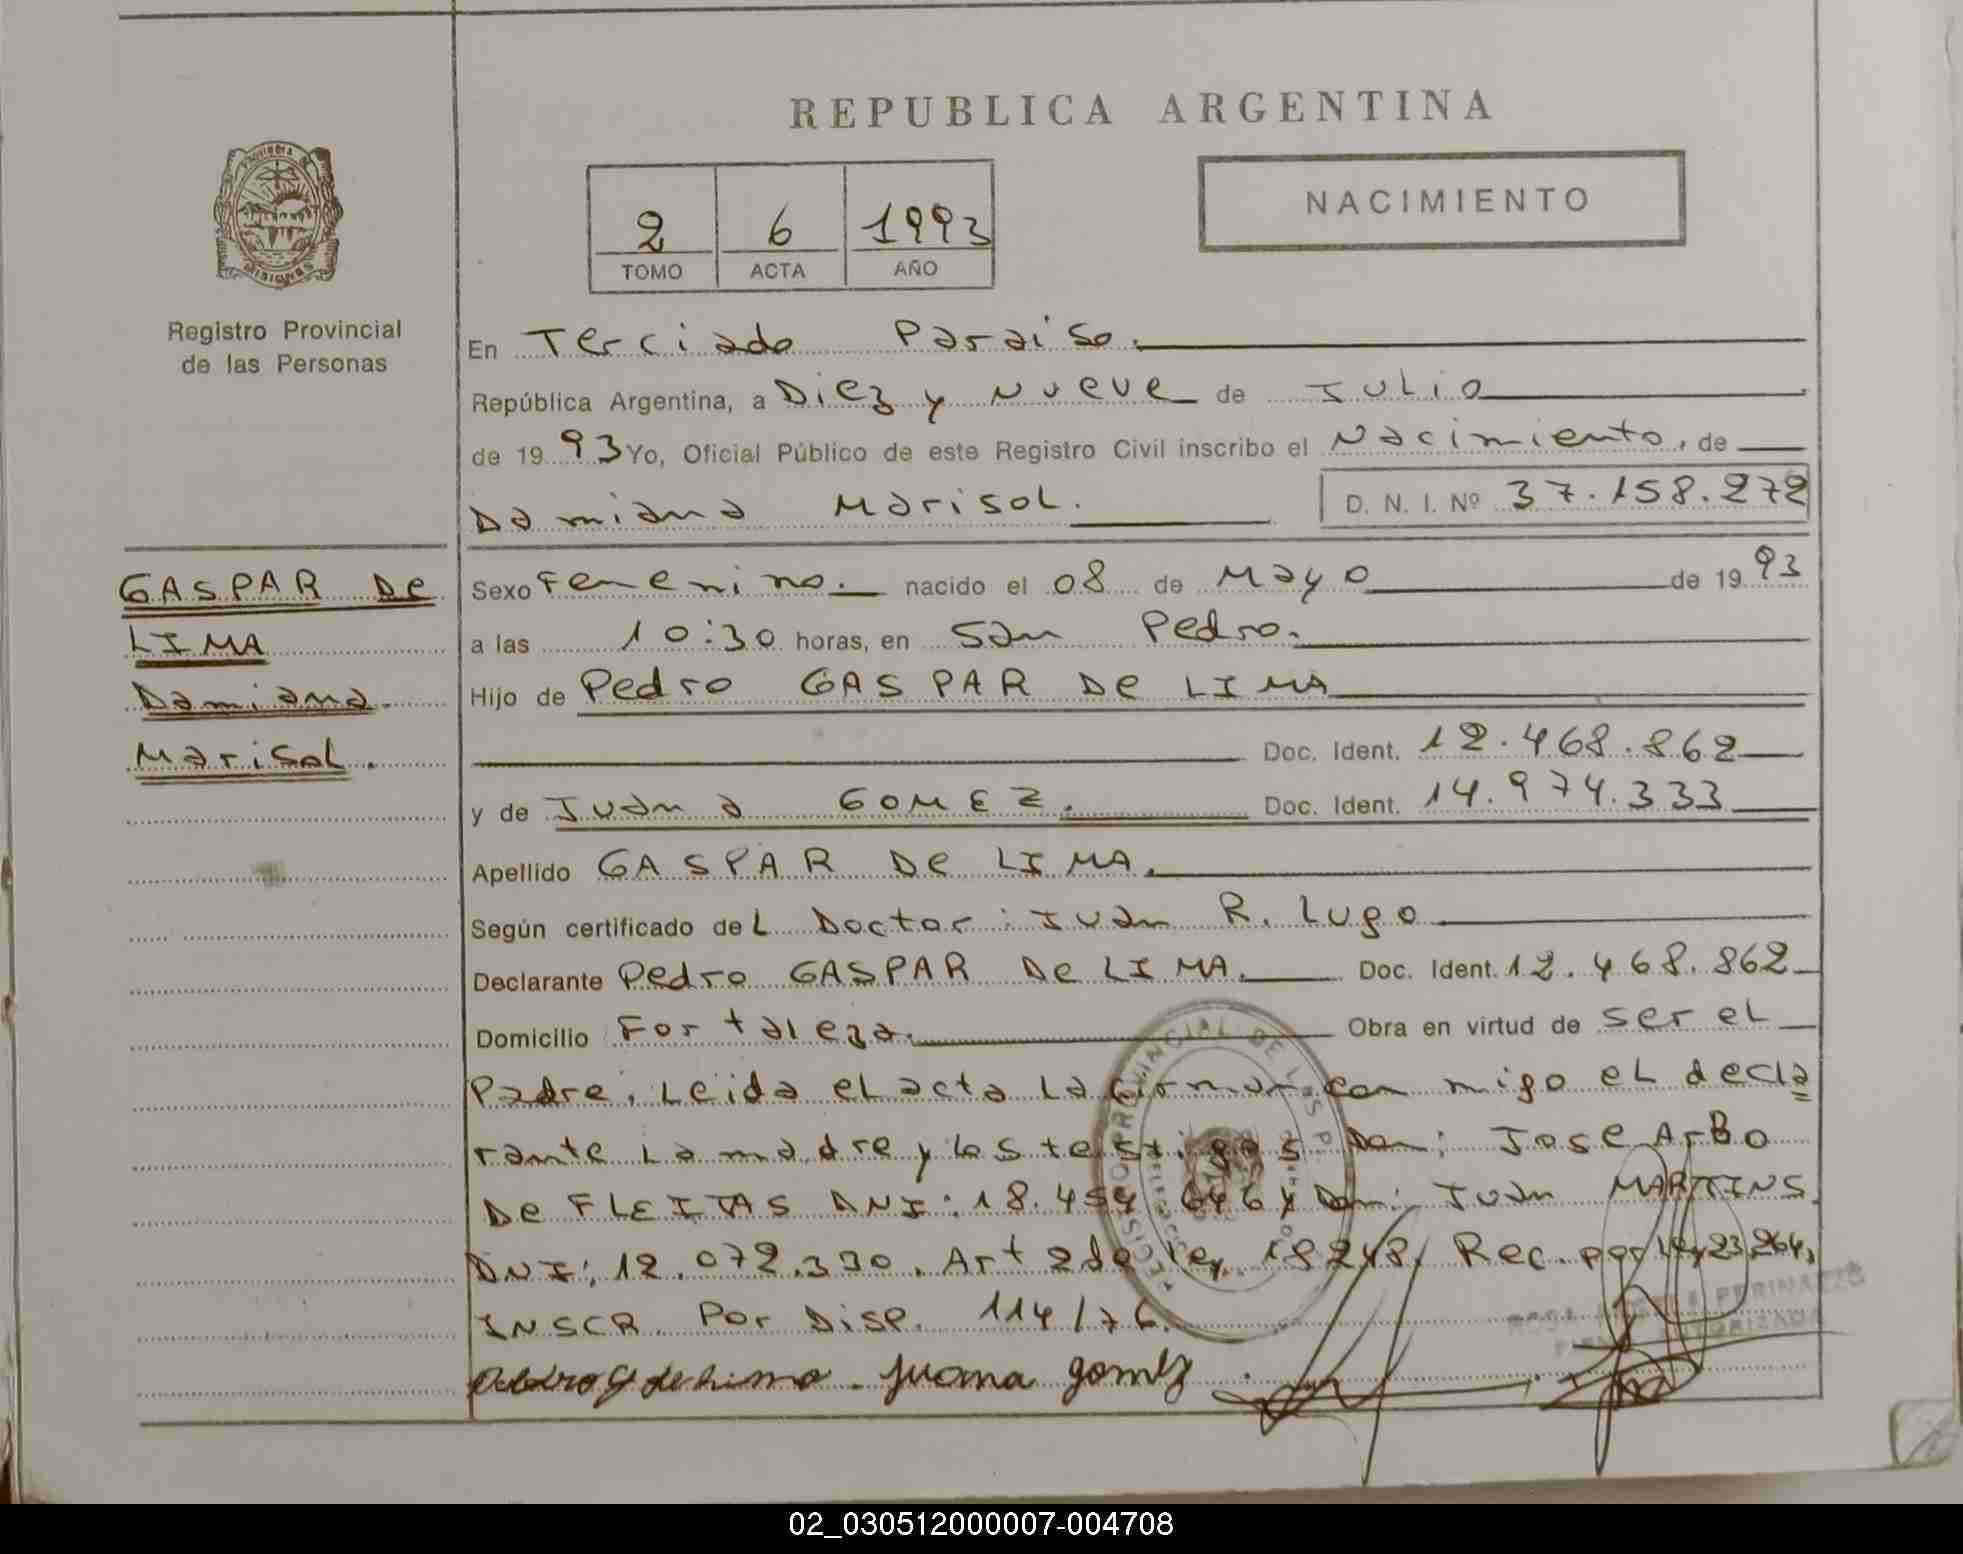 REPUBLICA ARGENTINA
NACIMIENTO
2 6 1993
TOMO ACTA AÑO
PROVINCIA DE
MISIONES
Registro Provincial
de las Personas
En Terciado Paraiso.
República Argentina, a Diez y Nueve de Julio
de 19 93 Yo, Oficial Público de este Registro Civil inscribo el Nacimiento, de
Damiana Marisol. D. N. I. Nº 37.158.272
GASPAR De
LIMA
Damiana
Marisol.
Sexo Femenino. nacido el 08 de Mayo de 19 93
a las 10:30 horas, en San Pedro.
Hijo de Pedro GASPAR De LIMA
Doc. Ident. 12.468.862
y de Juana GOMEZ. Doc. Ident. 14.974.333
Apellido GASPAR De LIMA.
Según certificado del Doctor: Juan R. Lugo
Declarante Pedro GASPAR De LIMA. Doc. Ident. 12.468.862
Domicilio Fortaleza. Obra en virtud de ser el
Padre, Leida el acta la firman con migo el decla
rante la madre y los testigos Don: Jose ArBo
De FLEITAS DNI: 18. y Don: Juan MARTINS.
DNI: 12.072.330. Art 2 de ley 18248. Rec. por Ley 23.264,
INSCR. Por Disp. 114/76.
PERINAZZO
AUTORIZADA
Juana gomez
02_030512000007-004708